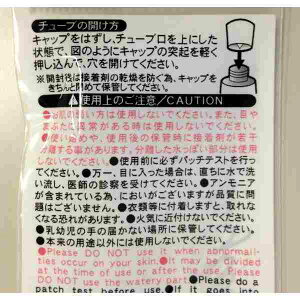 チューブの開け方
キャップをはずし、チューブ口を上にした
状態で、図のようにキャップの突起を軽く
押し込んで、穴を開けてください。
※開封後は接着剤の乾燥を防ぐ為、キャップを
きちんと閉めて保管してください。
使用上のご注意/CAUTION
●お肌の弱い方は使用しないでください。また、目や
まぶたに異常がある時は使用しないでください。
●使い始め、使用後の保管時に接着剤が若干
分離する事があります。分離した水っぽい部分は使用
しないでください。●使用前に必ずパッチテストを行
ってください。●万一、目に入った場合は、直ちに水で洗
い流し、医師の診察を受けてください。●アンモニア
が含まれている為、においがございますが品質に問
題はございません。●衣類等に付着しますと、取れな
くなる恐れがあります。●火気に近付けないでくださ
い。●乳幼児の手の届かない場所に保管してください。
●本来の用途以外には使用しないでください。
●Please DO NOT use it when abnormali-
ties occur on your skin. ●It may be divided
at the time of use or after the use. Please
DO NOT use the watery part. ●Please do a
patch test before use. ●If it goes into